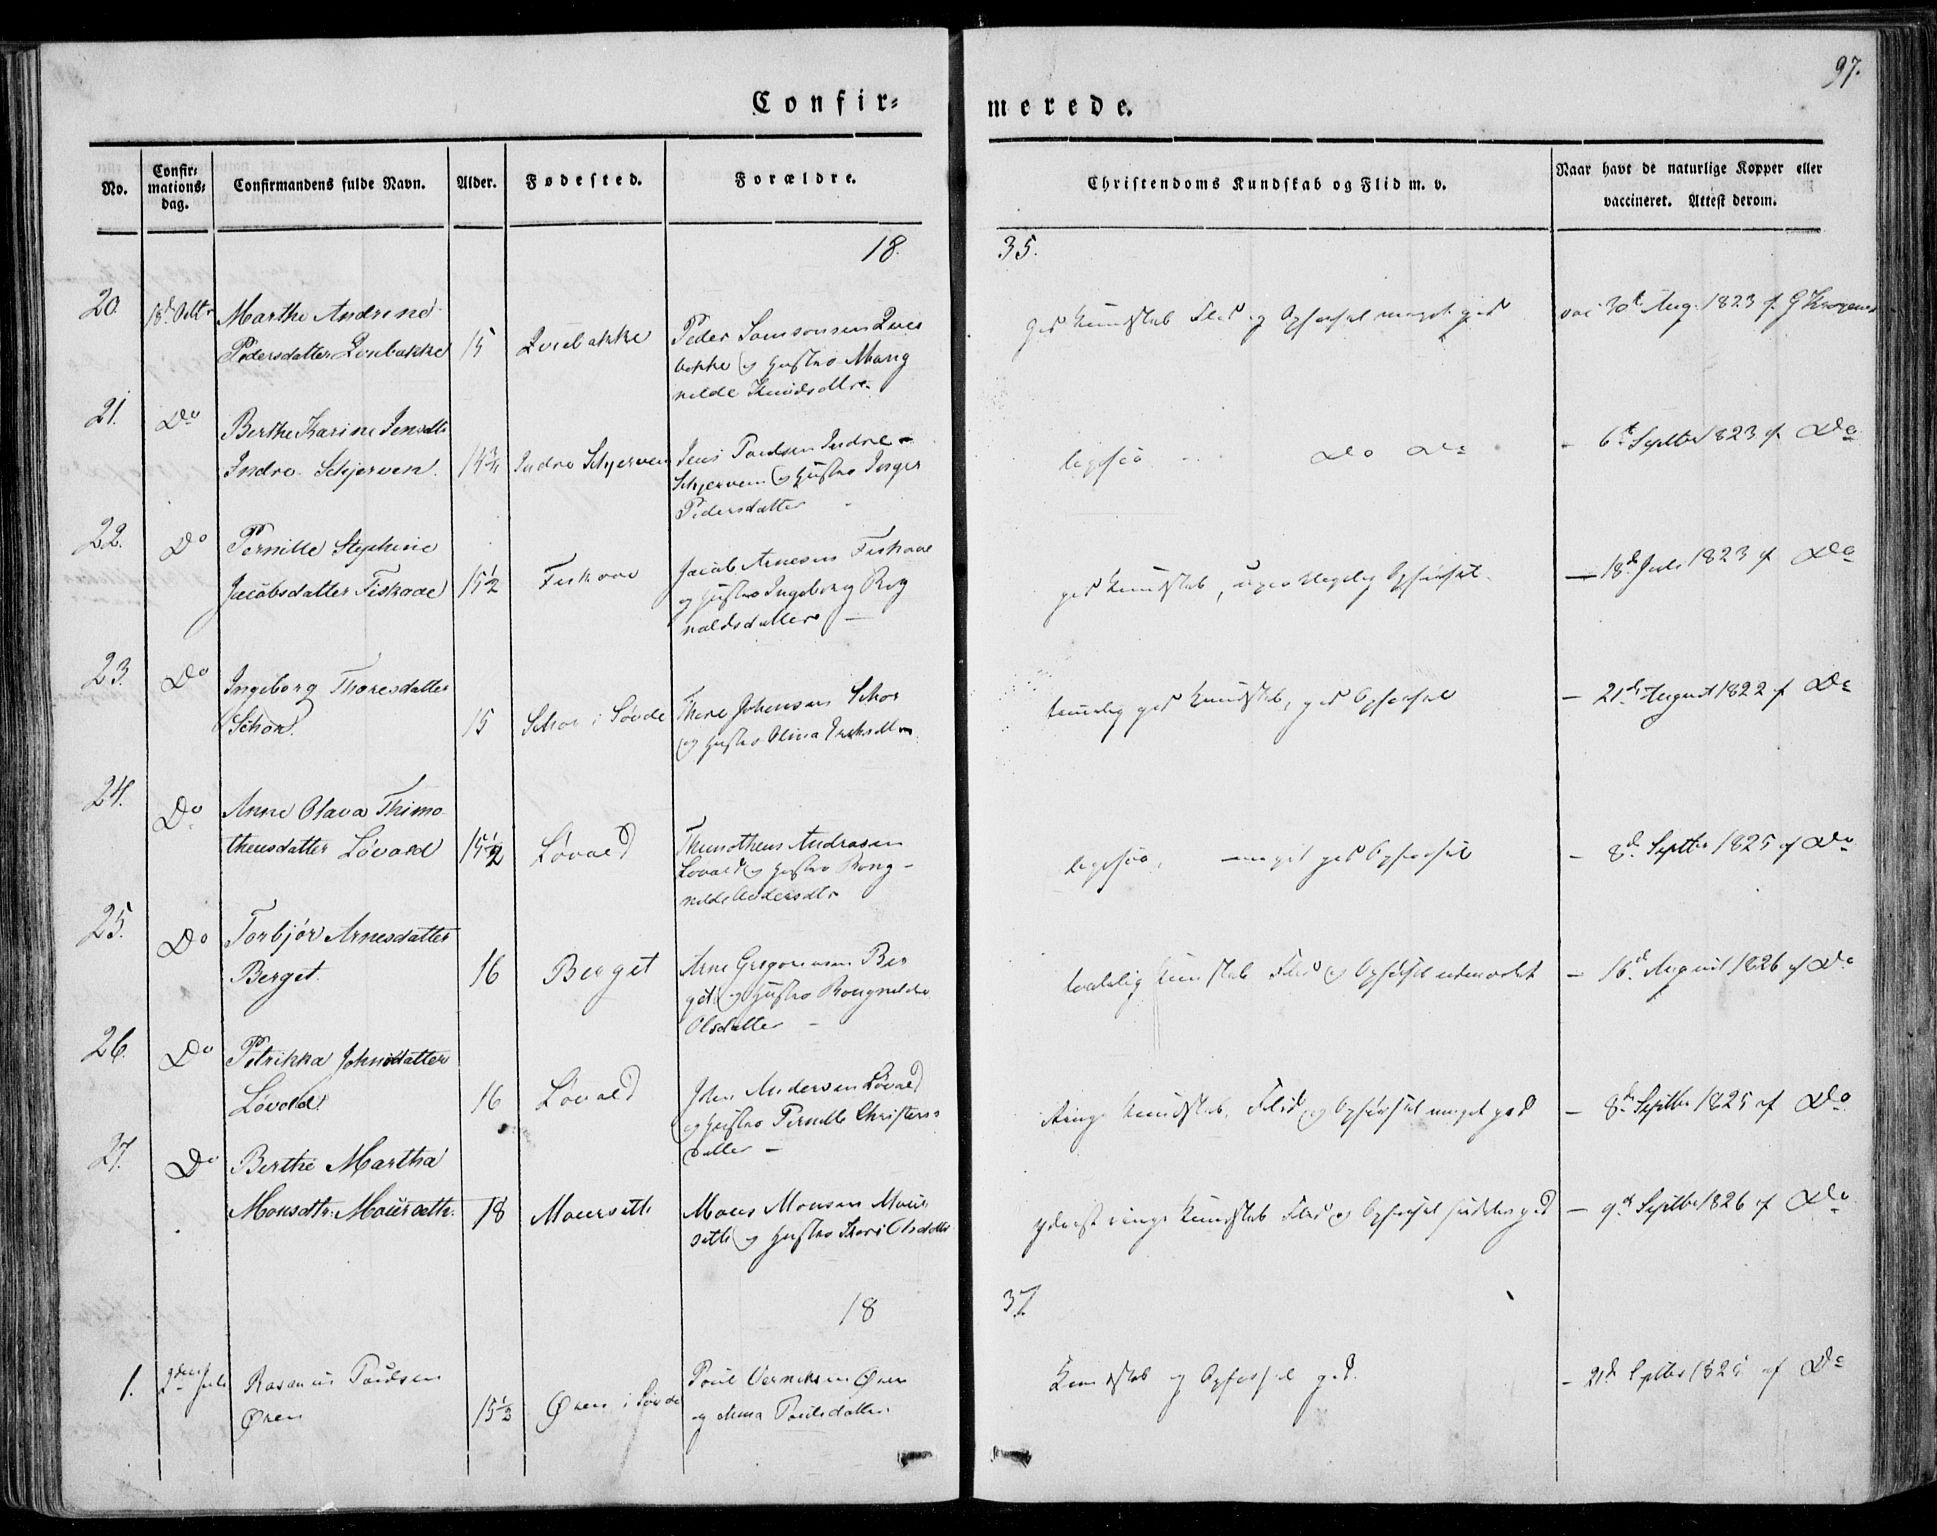 97.
Confir=
merede.
No.
Confir=
mations=
dag.
Confirmandens fulde Navn.
Alder.
Fødested.
Forældre.
Christendoms Kundskab og Flid m. v.
Naar havt de naturlige Kopper eller
vaccineret. Attest derom.
18
35.
20
Marthe Andrine
Pedersdatter
15
Peder Samsonsen
og Hustro Mang
nilde Knudsdtr
god Kundskab Flid og Opførsel meget god
vac 30te Aug. 1823 af
21.
Do
Berthe Karine Jensdtr
Indre Schjerven
Indre Schjerven
Jens Poulsen Indre
Schjerven og Hustro Inger
Pedersdatter
ligesaa
Do Do
- 6te Septbr 1823 af Do
22.
Do
Pernille Stephine
Jacobsdatter Fiskaae
15½
Fiskaae
Jacob Arnesen Fiskaae
og Hustro Ingeborg Rog
naldsdatter
god Kundskab, Opførsel
- 18d Juli 1823 af Do
23.
Do
Ingeborg Thoresdatter
Schor
15
Schor i Søvde
Thore Johnsen Schor
og Hustro Olina
temmelig god Kundskab, god Opførsel
- 21de August 1822 af Do
24.
Do
Anne Olava Thimo
theusdatter Løvold
15½
Løvold
Thimotheus Andrasen
Løvold og Hustro Rong
nilde
ligesaa, meget god Opførsel
- 8d Septbr 1825 af Do
25.
Do
Torbjør Arnesdatter
Berget.
16
Berget
Arne Gregoriusen Ber
get og Hustro Rongnilde
Olsdatter
Kundskab Flid og Opførsel udmærket
- 16d August 1826 af Do
26.
Do
Petrikka Johnsdatter
Løvold
16
Løvold
John Andersen Løvold
og Hustro Pernille Christens
datter
ringe Kundskab, Flid og Opførsel meget god
- 8de Septbr 1825 af Do
27.
Do
Berthe Martha
Monsdtr
18
Mons Monsen
og Hustro Kari Olsdatter
yderst ringe Kundskab Flid og Opførsel god
- 9d Septbr 1826 af Do
18
37.
1.
2den Juli
Rasmus Poulsen
Øren
15½
Øren i Søvde
Poul Øren
og Anna Poulsdatter
Kundskab og Opførsel god.
- 21d Septbr af Do